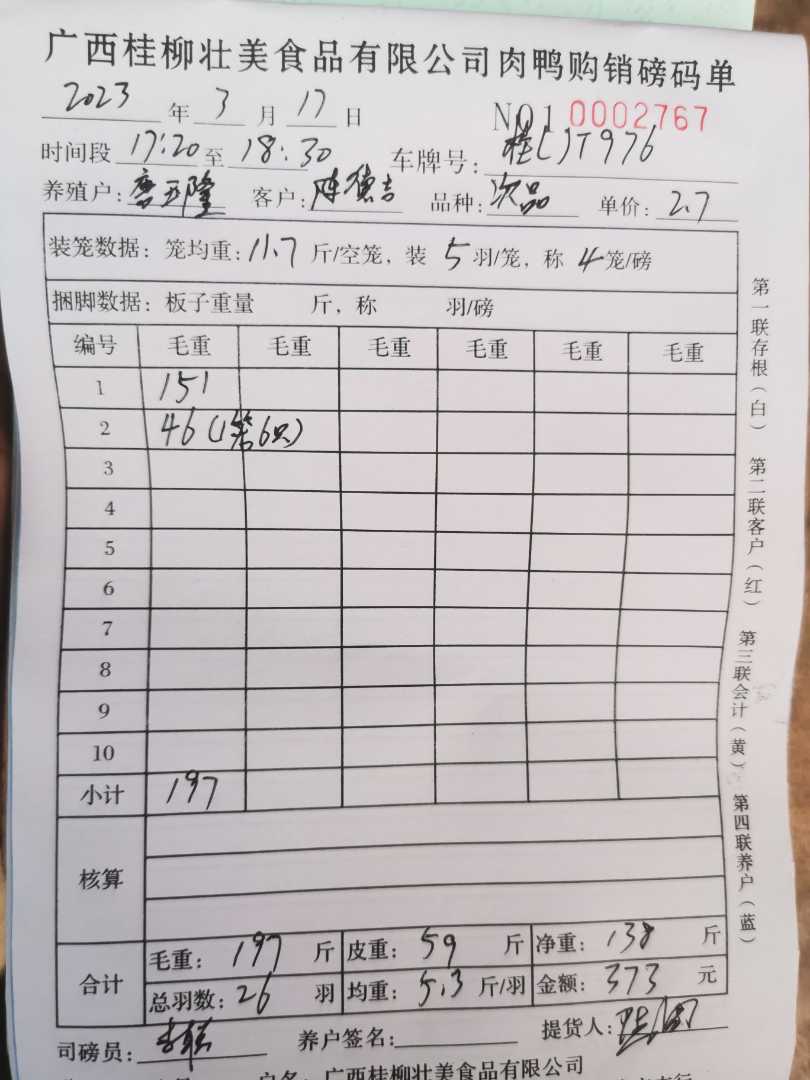 广西桂柳壮美食品有限公司肉鸭购销磅码单
2023 年 3 月 17 日 NO1 0002767
时间段 17:20 至 18:30 车牌号: 桂()T976
养殖户: 隆 客户: 陈德吉 品种: 次品 单价: 2.7
装笼数据: 笼均重: 11.7 斤/空笼, 装 5 羽/笼, 称 4 笼/磅
捆脚数据: 板子重量 斤, 称 羽/磅
编号 毛重 毛重 毛重 毛重 毛重 毛重
1 151
2 46(1笼6只)
3
4
5
6
7
8
9
10
小计 197
核算
合计 毛重: 197 斤 皮重: 59 斤 净重: 138 斤
总羽数: 26 羽 均重: 5.3 斤/羽 金额: 373 元
司磅员: 养户签名: 提货人:
户名: 广西桂柳壮美食品有限公司
第一联存根(白) 第二联客户(红) 第三联会计(黄) 第四联养户(蓝)